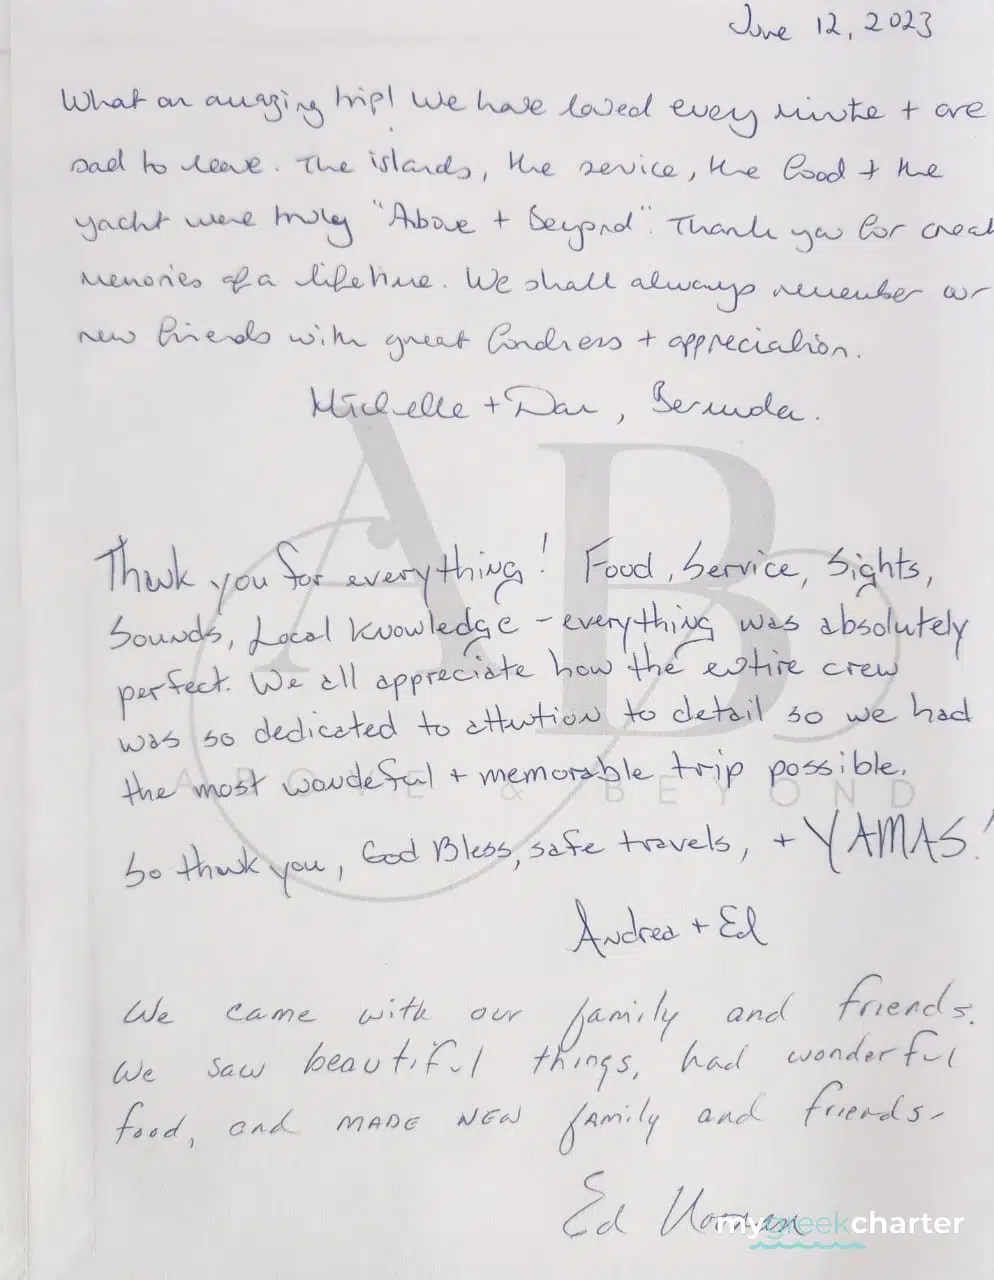 June 12, 2023
What an amazing trip! We have loved every minute + are
sad to leave. The islands, the service, the food + the
yacht were truly "Above + Beyond". Thank you for creat
memories of a lifetime. We shall always remember our
new friends with great fondness + appreciation.
Michelle + Dan, Bermuda.
AB
Thank you for everything! Food, Service, Sights,
Sounds, Local Knowledge - everything was absolutely
perfect. We all appreciate how the entire crew
was so dedicated to attention to detail so we had
the most wonderful + memorable trip possible.
ABOVE & BEYOND
So thank you, God Bless, safe travels, + YAMAS!
Andrea + Ed
We came with our family and friends.
We saw beautiful things, had wonderful
food, and MADE NEW family and friends.
Ed
mygreekcharter